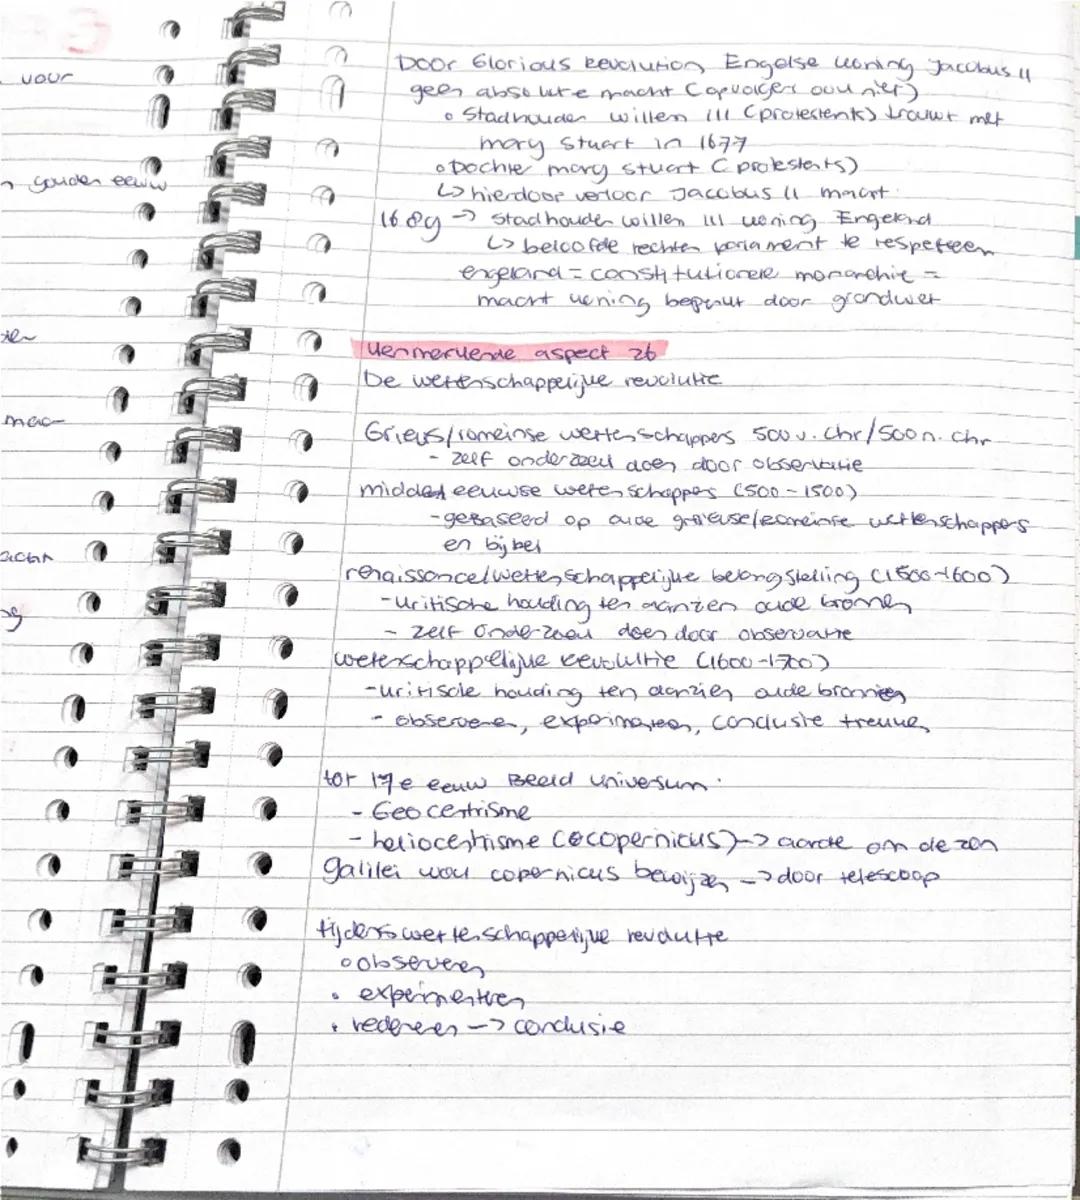 vour
gouden eeuw
Door Glorious Revolution Engelse koning Jacobus II
geen absolute macht (opvolger ook niet)
◦ Stadhouder willem III (protestents) trouwt met
mary Stuart in 1677
◦ Dochter mary stuart (protestents)
↳ hierdoor verloor Jacobus II macht
1689 → stadhouder willem III koning Engeland
↳ beloofde rechten parlament te respeteren
engeland = constitutionele monarchie =
macht koning beperkt door grondwet
kenmerkende aspect 26
De wetenschappelijke revolutie
Grieks/romeinse wettenschappers 500 v. chr/500 n. chr
- zelf onderzoek doen door observatie
middeleeuwse wetenschappers (500-1500)
- gebaseed op oude griekse/romeinse wettenschappers
en bijbel
renaissance/wettenschappelijke belangstelling (1500-1600)
- kritische houding ten aanzien oude bronnen
- zelf onderzoek doen door observatie
wetenschappelijke revolutie (1600-1700)
- kritische houding ten aanzien oude bronnen
- observeren, experimenteren, conclusie trekken
tot 17e eeuw Beeld universum:
- Geocentrisme
- heliocentrisme (copernicus) → aarde om de zon
Galilei wou copernicus bewijzen → door telescoop
tijdens wettenschappelijke revolutie
◦ observeren
• experimenteren
• redeneren → conclusie